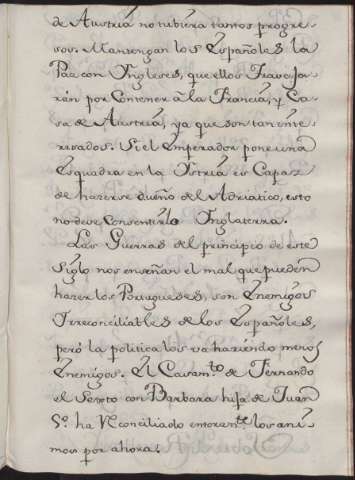 de Austria no tubiera tantos progre-
sos. Mantengan los Españoles la
Paz con Yngleses, que ellos Travaja-
rán por Contener â la Francia, y Ca-
sa de Austria, ya que son tan inte-
resados. Si el Emperador pone una
Esquadra en la Ystria es Capaz
de hazerse dueño del Adriatico, esto
no deve Consentirlo Ynglaterra.
Las Guerras del principio de este
Siglo nos enseñan el mal que pueden
hazer los Portugueses, son Enemigos
Yrreconciliables de los Españoles,
peró la politica los va haziendo menos
Enemigos. El Casamto de Fernando
el Sexto con Barbara hija de Juan
5o. ha Reconciliado enteramte los ani-
mos por ahora.